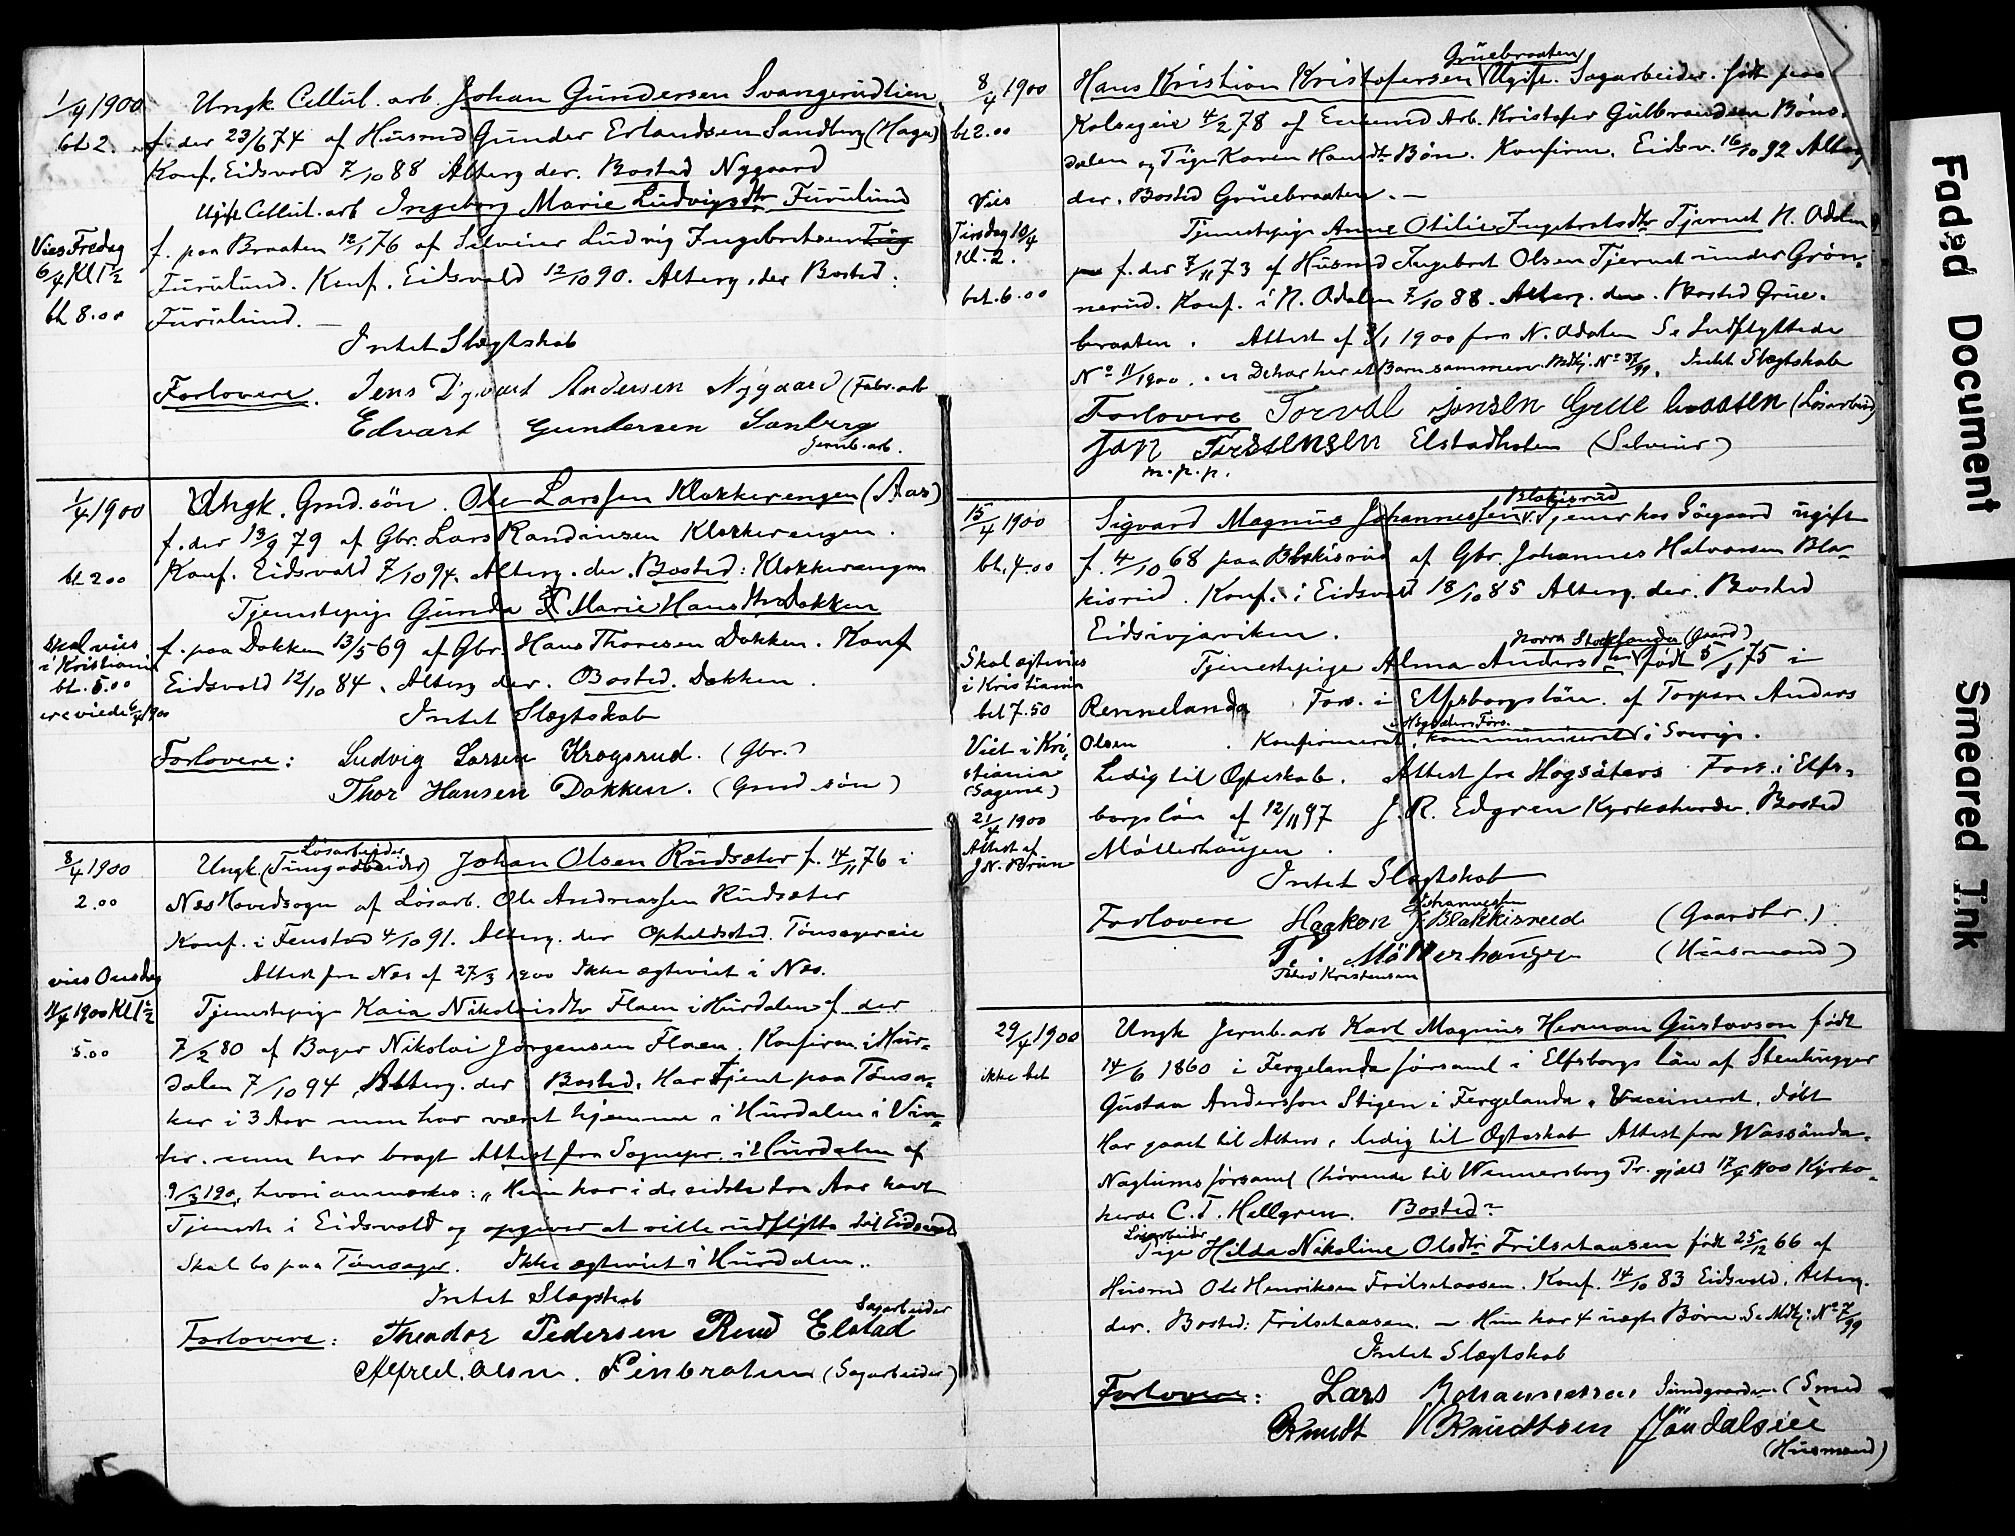 1/4 1900
Ungk. Cellul. arb. Johan Gundersen Svangerudlien
bt 2.
f. der 23/6 74 af Husmd Gunder Erlandsen Sandberg (Haga)
Konf. Eidsvold 7/10 88 Alterg. der. Bosted Nygaard
Ugift Cellul. arb Ingeborg Marie Ludvigsdtr Furulund
Vies Fredag
6/4 Kl 1 1/2
bt 8.00
f. paa Braaten 12/1 76 af Selveier Ludvig Ingebretsen
Furulund. Konf. Eidsvold 12/10 90. Alterg. der Bosted:
Furulund. —
Intet Slægtskab
Forlovere. Jens Dyvart Andersen Nygaard (Fabr. arb
Edvart Gundersen Sanberg
Jernb. arb.
1/4 1900
Ungk. Grmd. sön. Ole Larssen Klokkerengen (Aas)
f. der 13/9 79 af Gbr. Lars Randinsen Klokkerengen.
bt 2 00
Konf. Eidsvold 7/10 94. Alterg. der. Bosted: Klokkerengen
Tjenestepige Gunda Marie Hansdtr Dokken
Skal vies
i Kristiania
bt. 5.00
ere viede 6/4 1900
f. paa Dokken 13/5 69 af Gbr. Hans Thoresen Dokken. Konf
Eidsvold 12/10 84. Alterg der. Bosted. Dokken.
Intet Slægtskab
Forlovere: Ludvig Larsen Krogsrud. (Gbr.)
Thor Hansen Dokken. (Grmd sön)
8/4 1900
Løsarbeider
Ungk. (Tungarbeider) Johan Olsen Rudsæter f. 14/11 76 i
2.00
Nes Hovedsogn af Løsarb. Ole Andreassen Rudsæter
Konf. i Fenstad 4/10 91. Alterg. der Opholdssted. Tönsagereie
Attest fra Nes af 27/3 1900 Ikke ægteviet i Nes.
vies Onsdag
11/4 1900 Kl 1 1/2
5.00
Tjenestepige Kaia Nikolaisdtr Flaen i Hurdalen f. der
7/2 80 af Bager Nikolai Jørgensen Flaen. Konfirm. i Hur-
dalen 7/10 94, Alterg. der Bosted. Har tjent paa Tönsa-
ker i 3 Aar men har været hjemme i Hurdalen i Vin-
ter. men har bragt Attest fra Sognepr. i Hurdalen af
9/3 190, hvori anmærkes: "Hun har i de sidste tre Aar havt
Tjeneste i Eidsvold og opgiver at ville udflytte til Eidsvold
Skal bo paa Tönsager. Ikke ægteviet i Hurdalen."
Intet Slægtskab
Forlovere: Theodor Pedersen Rud Elstad
Sagarbeider
Alfred. Olsen. Finbraten (Sagarbeider)
8/4 1900
bt 2.00
Gruebraaten
Hans Kristian Kristofersen Ugift. Sagarbeider. født paa
Kolsegeie 4/2 78 af Arb. Kristofer Gulbrandsen Böns-
dalen og Pige Karen Hansdtr Bön. Konfirm. Eidsv. 16/10 92 Alterg
der. Bosted Gruebraaten. —
Vies
Tirsdag 10/4
Kl. 2.
bt. 6.00
Tjenestepige Anne Otilie Ingebretsdtr Tjernet N. Odalen
f. der 7/11 73 af Husmd Ingebret Olsen Tjernet under Grön-
nerud. Konf. i N. Odalen 7/10 88. Alterg. der. Bosted Grue-
braaten. Attest af 3/1 1900 fra N. Odalen Se Indflyttede
No 11/1900. De har her et Barn sammen. No 37/99. Intet Slægtskab
Forlovere Torval Jonsen Gruebraaten (Løsarbeid)
Jan Torstensen Elstadholen (Selveier)
m. p. p.
15/4 1900
bt. 4.00
Blakisrud
Sigvard Magnus Johannessen Tjener hos Söegaard ugift
f. 4/10 68 paa Blakisrud af Gbr. Johannes Halvorsen Bla-
kisrud. Konf. i Eidsvold 18/10 85 Alterg. der. Bosted
Eidsivjaviken.
Norra Stocklanda (Gaard)
Skal ægtevies
i Kristiania
bet 7.50
Viet i Kri-
stiania
(Sagene)
21/4 1900
Attest af
J. N. Brun
Tjenestepige Alma Andersdtr født 5/1 75 i
Rennelanda Fors. i Elfsborgslän. af Torpare Anders
i Högsäters Förs.
Olsen. Konfirmeret, kommuniceret i Sverige.
Ledig til Ægteskab. Attest fra Högsäters Fors. i Elfs-
borgs län af 12/11 97 J. R. Edgren Kyrkoherde. Bosted
Möllerhaugen.
Intet Slægtskab
Johannessen
Forlovere Haakon J Blakkisrud (Gaardbr.)
T. Möllerhaugen (Husmand)
Kristensen
29/4 1900
ikke bet
Ungk Jernb. arb Karl Magnus Herman Gustavson født
14/6 1860 i Fergelanda församl i Elfsborgs län af Stenhugger
Gustav Andersson Stigen i Fergelanda. Vaccineret, döbt
Har gaaet til Alters, ledig til Ægteskab Attest fra Wassända-
Naglums församl (hörende til Wennersborg Pr. gjeld 17/4 1900 Kyrko-
herde C. T. Hellgren. Bosted?
Løsarbeider
Pige Hilda Nikoline Olsdtr Frilsetaasen født 25/12 66 af
Husmd Ole Henriksen Frilsetaasen. Konf. 14/10 83 Eidsvold. Alterg.
der. Bosted: Frilsetaasen. — Hun har 4 uægte Børn. Se No 7/99
Intet Slægtskab
Forlovere: Lars Johannessen Sundgaarden (Smed
Knudt Knudtsen Jöndalseie
(Husmand)
Faded Document
Smeared Ink